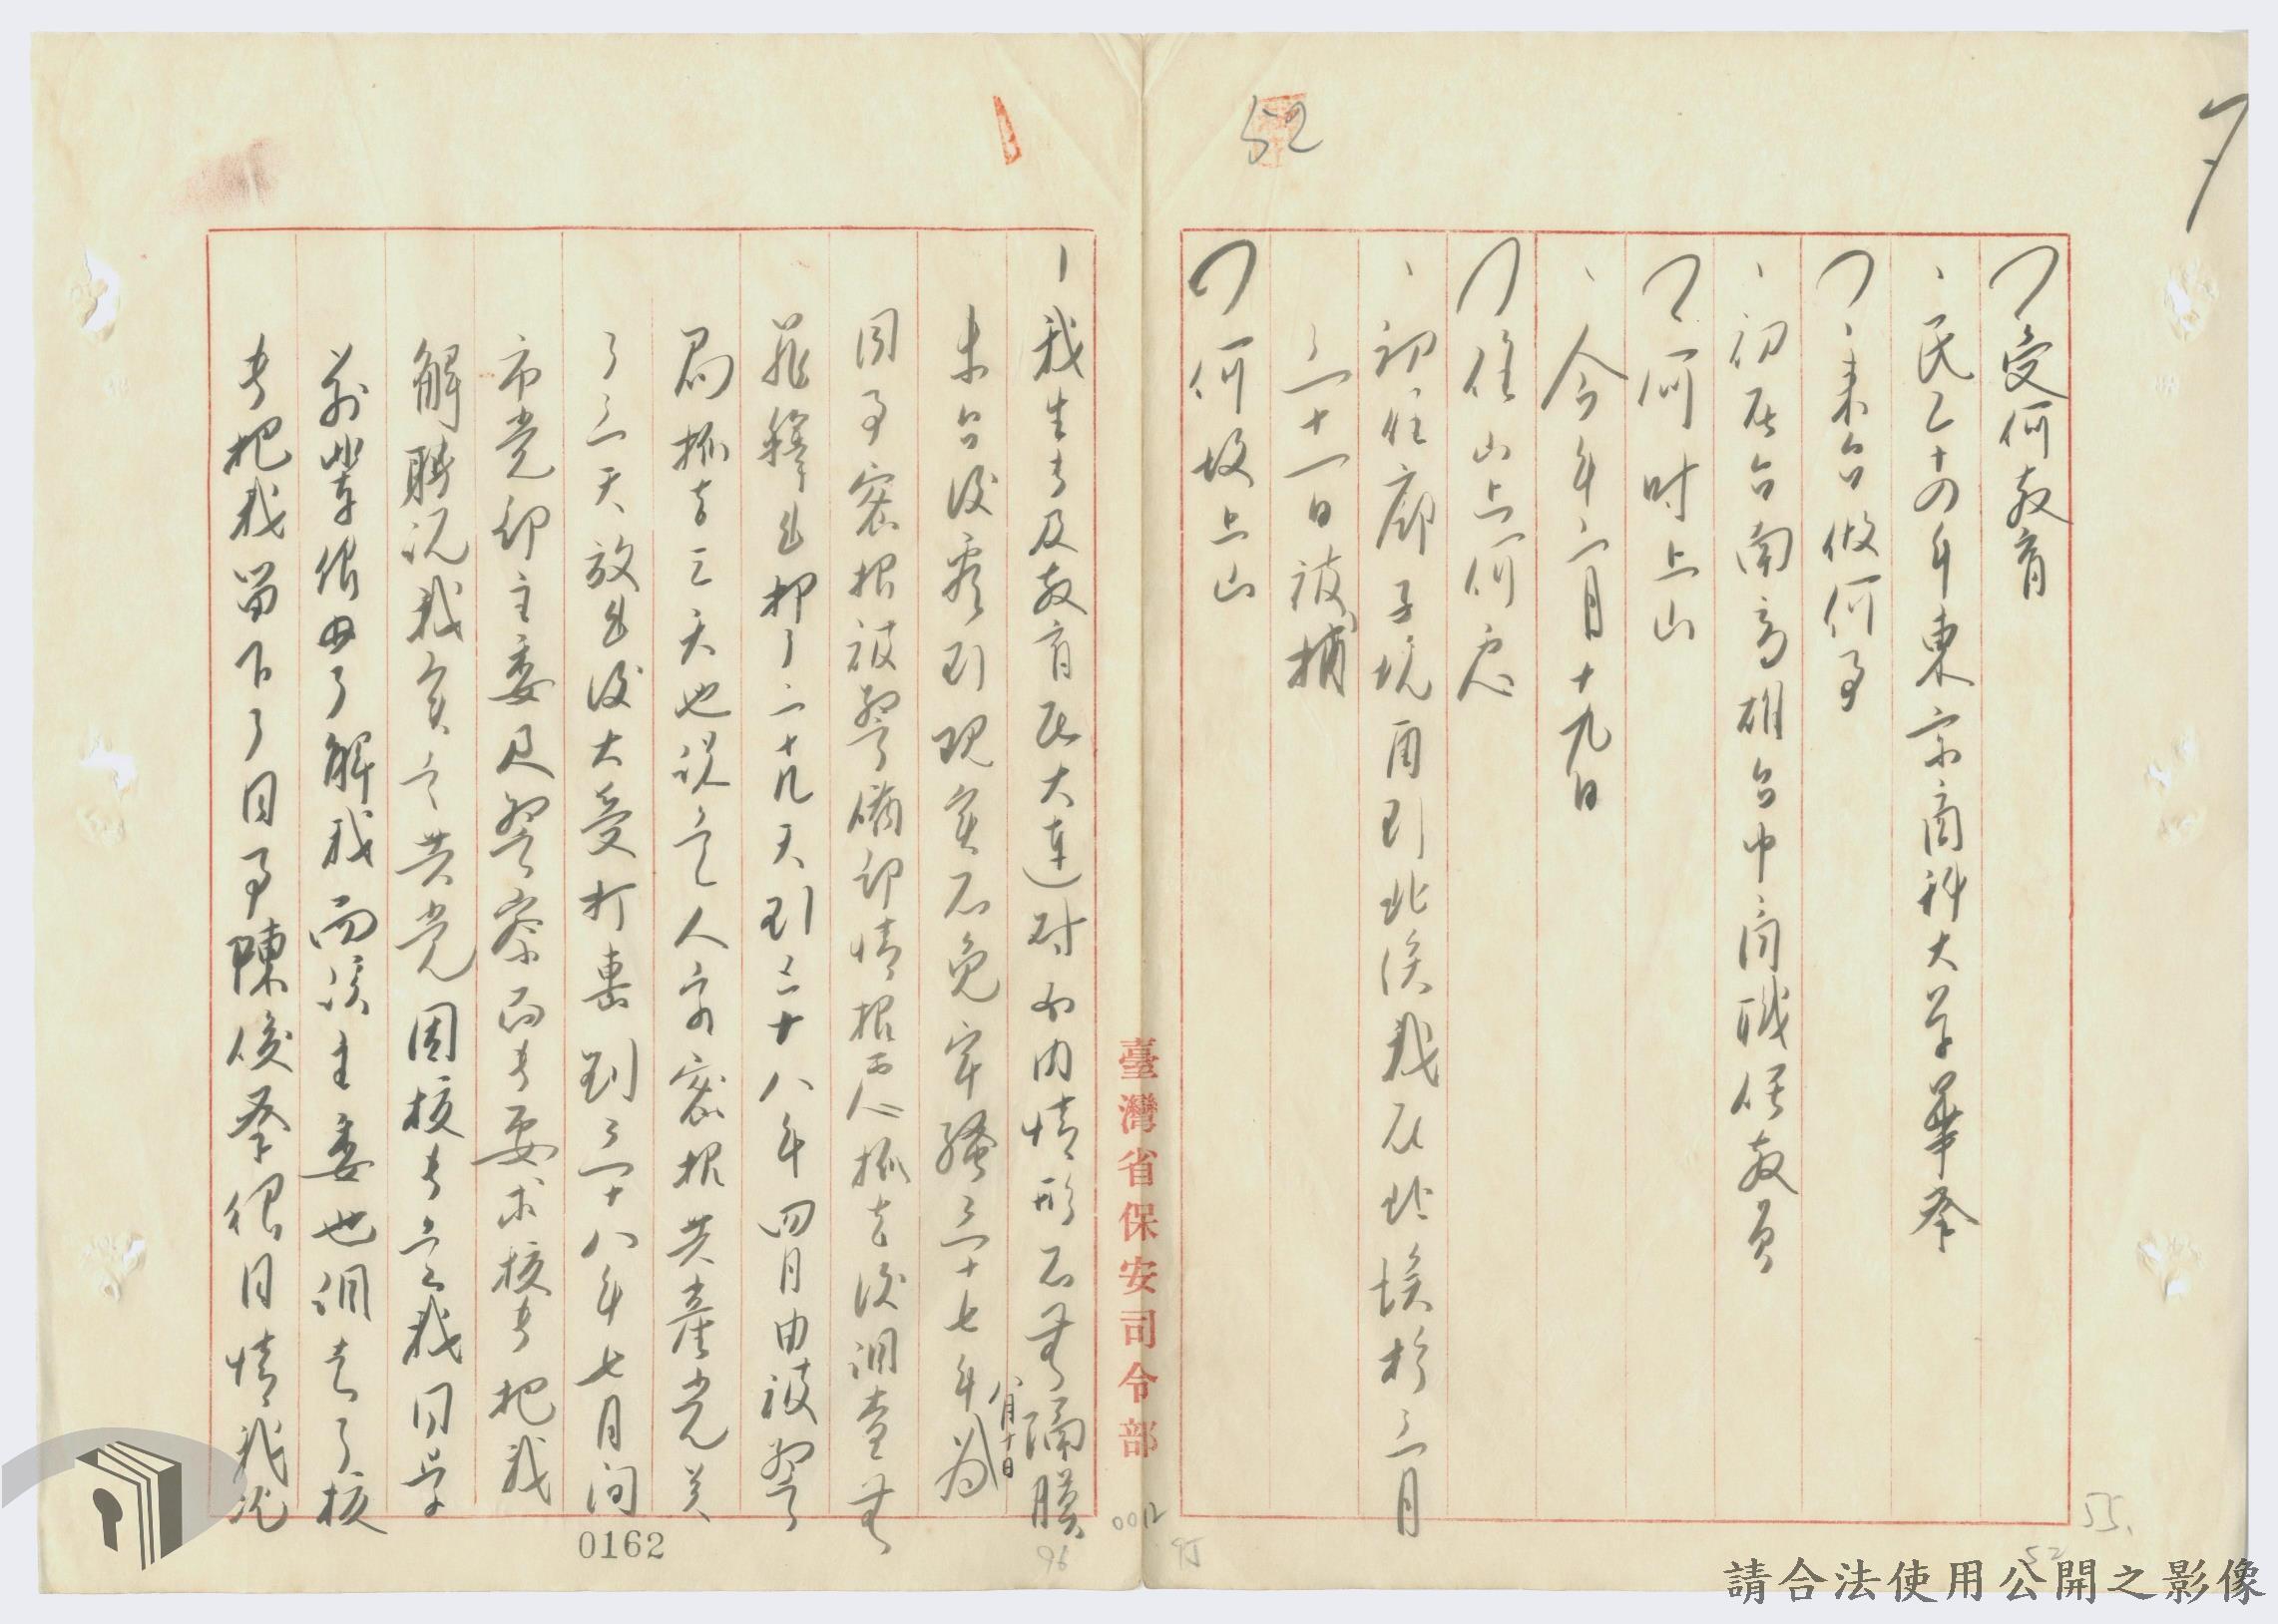 52
問 受何教育
、民二十四年東京商科大学畢業
問、來台做何事
、初在台南高雄台中商職任教員
問 何時上山
、今年二月十九日
問 住山上何處
、初住廍子坑再到北後我在北埃於三月
三十一日被捕
問 何故上山
我生長及教育在大連對內情形不無隔膜
來台後看到現實不免牢騷三十七年八月十日為
同事密報被警備部情報處抓去後調查無
罪釋出押了二十九天到三十八年四月由被警
局抓去三天也說是人家密報共產党关
了三天放出後大受打擊到三十八年七月间
市党部主委及警察局長要求校長把我
解聘説我 是共党 因校長是我同学
前 了解我而該主委也調走了校
長把我留下了同事陳俊 很同情我況
臺灣省保安司令部
0012
95
96
55.
52
0162
請合法使用公開之影像